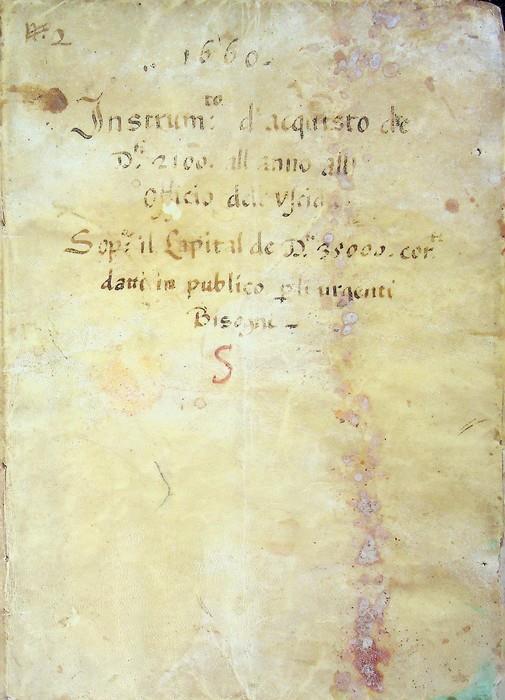 N.º 2
1660.
Instrum.to d'acquisto de
D.ti 2100. all anno all
Officio dell Uscio
Sop.a il Capital de D.ti 35000. cor.ti
datti in publico p li urgenti
Bisogni
S